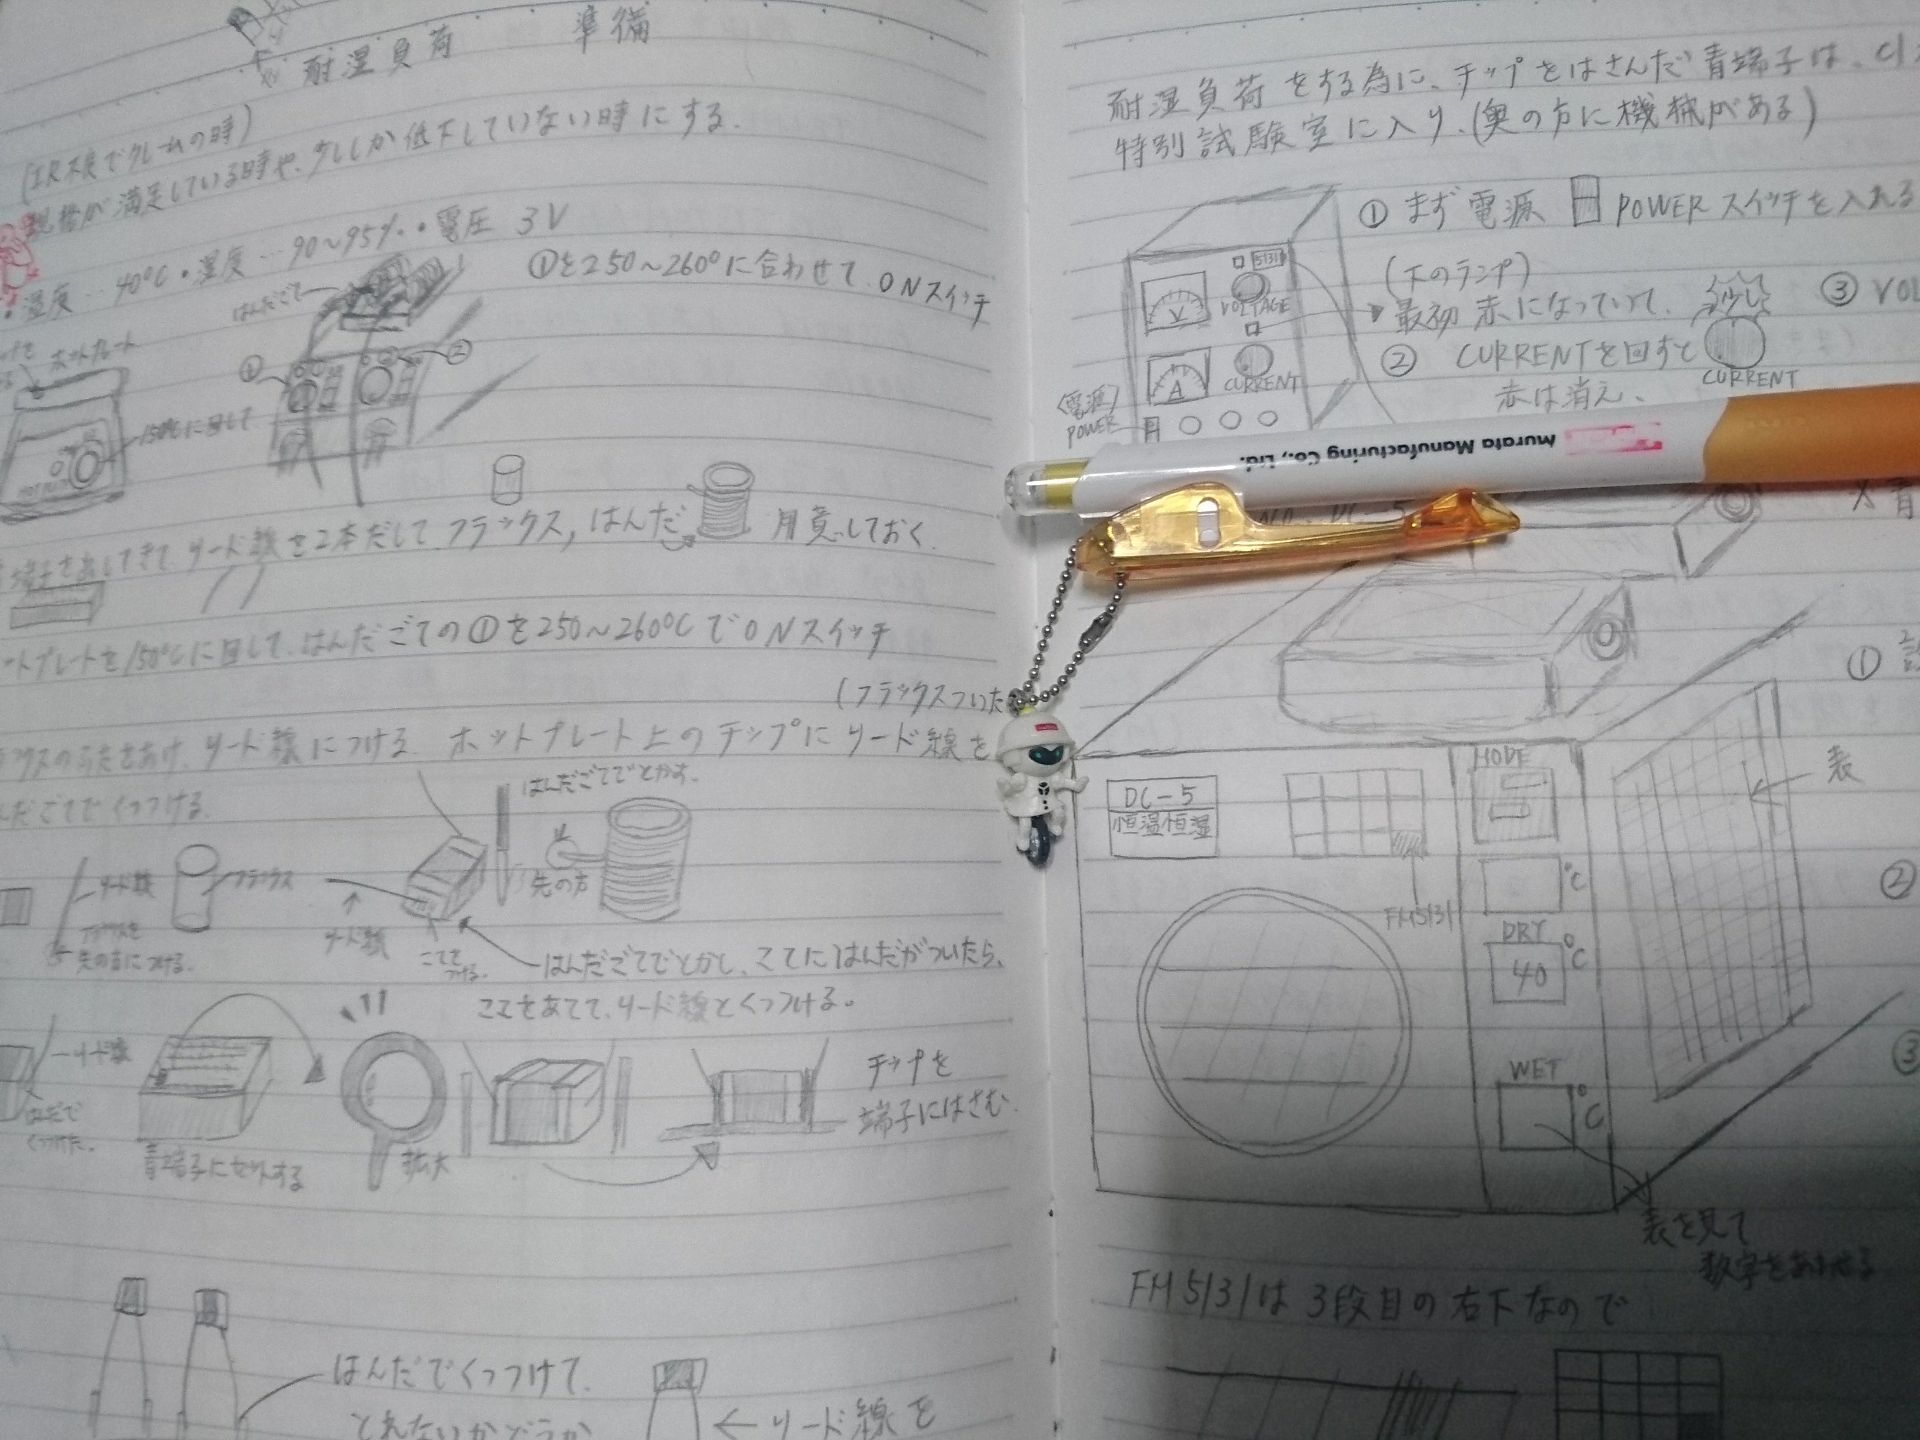 耐湿負荷 準備
(IR不良でクレームの時)
規格が満足している時や、少ししか低下していない時にする.
・温度…40℃・湿度…90〜95%・電圧 3V
①を250〜260°に合わせて、ONスイッチ
はんだごて
ホットプレート
①
②
150℃に回して
リード線を2本だして、フラックス,はんだ 用意しておく.
プレートを150℃に回して、はんだごての①を250〜260℃でONスイッチ
(フラックスついた
のふたをあけ、リード線につける. ホットプレート上のチップにリード線を
はんだごてでとかす.
でくっつける.
リード線
フラックス
先の方
先の方につける.
リード線
こてを
つける.
はんだごてでとかし、こてにはんだがついたら、
こてをあてて、リード線とくっつける。
リード線
はんだで
くっつけた.
青端子にセットする
拡大
チップを
端子にはさむ.
はんだでくっつけて.
とれないかどうか
← リード線を
耐湿負荷をする為に、チップをはさんだ青端子は、
特別試験室に入り、(奥の方に機械がある)
① まず電源 POWERスイッチを入れる
(下のランプ)
最初赤になっていて.
② CURRENTを回すと
赤は消え、
少し
CURRENT
③ VOL
5131
V
VOLTAGE
A
CURRENT
(電源)
POWER
Murata Manufacturing Co., Ltd.
DC-5
①
表
DC-5
恒温恒湿
FM5131
MODE
℃
DRY
40
℃
WET
℃
②
③
表を見て
数字をあわせる
FM5131は3段目の右下なので